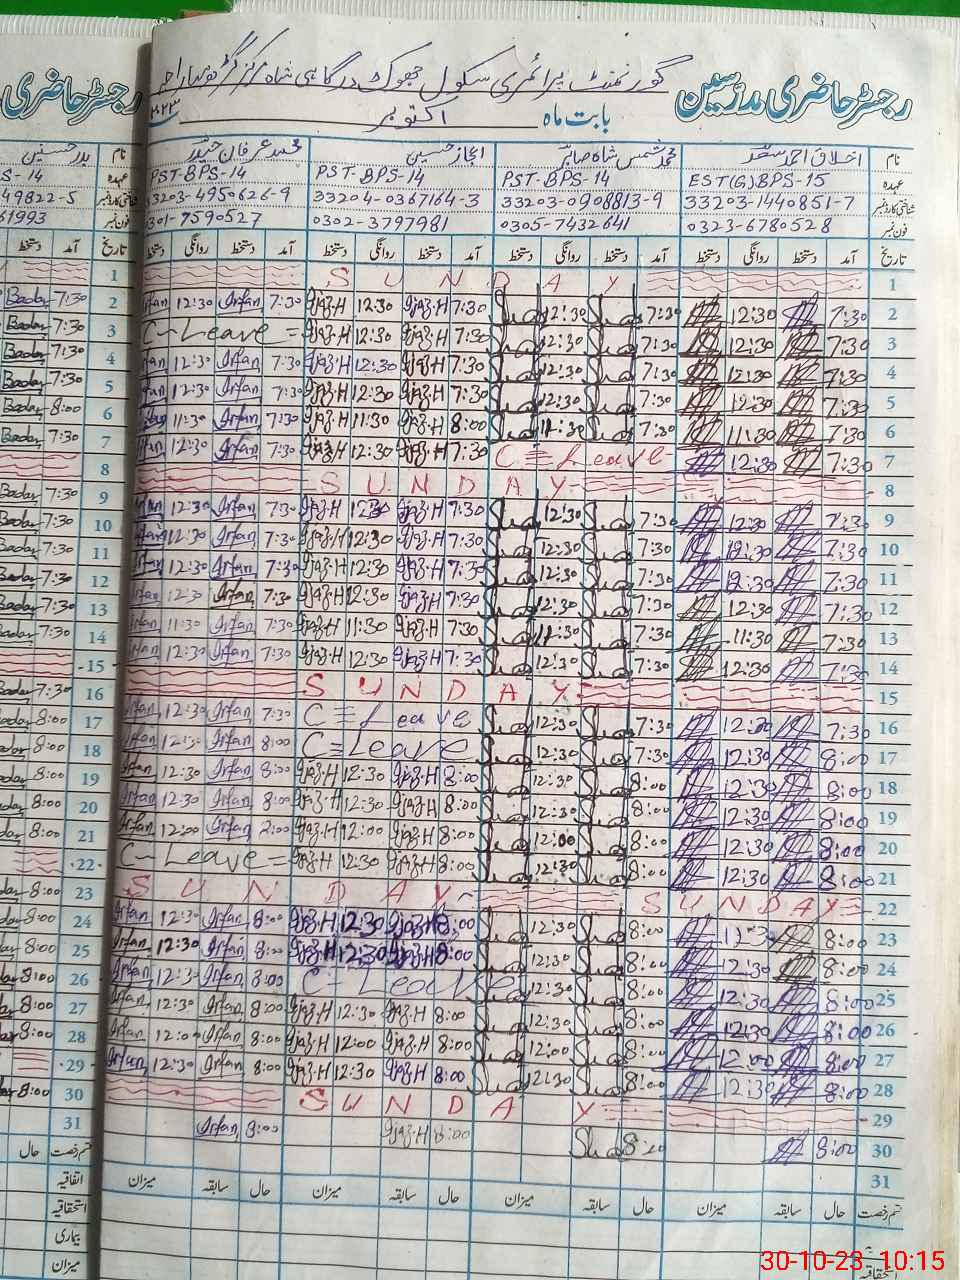 رجسٹر حاضری مدرسین گورنمنٹ پرائمری سکول جھوک درگاہی شاہ مرکز گڑھ مہاراجہ
بابت ماہ اکتوبر ۲۰۲۳
نام اخلاق احمد سعید محمد شمس شاہ صابر اعجاز حسین محمد عرفان حیدر
عہدہ EST(G) BPS-15 PST-BPS-14 PST-BPS-14 PST-BPS-14
شناختی کارڈ نمبر 33203-1440851-7 33203-0908813-9 33204-0367164-3 33203-4950626-9
فون نمبر 0323-6780528 0305-7432641 0302-3797981 0301-7590527
تاریخ آمد دستخط روانگی دستخط آمد دستخط روانگی دستخط آمد دستخط روانگی دستخط آمد دستخط روانگی دستخط
1 SUNDAY
2 7:30 12:30 7:30 Shah 12:30 Shah 7:30 Ijaz.H 12:30 Ijaz.H 7:30 Irfan 12:30 Irfan
3 7:30 12:30 7:30 Shah 12:30 Shah 7:30 Ijaz.H 12:30 Ijaz.H C-Leave
4 7:30 12:30 7:30 Shah 12:30 Shah 7:30 Ijaz.H 12:30 Ijaz.H 7:30 Irfan 12:30 Irfan
5 7:30 12:30 7:30 Shah 12:30 Shah 7:30 Ijaz.H 12:30 Ijaz.H 7:30 Irfan 12:30 Irfan
6 7:30 11:30 7:30 Shah 11:30 Shah 8:00 Ijaz.H 11:30 Ijaz.H 7:30 Irfan 11:30 Irfan
7 7:30 12:30 C-Leave 7:30 Ijaz.H 12:30 Ijaz.H 7:30 Irfan 12:30 Irfan
8 SUNDAY
9 7:30 12:30 7:30 Shah 12:30 Shah 7:30 Ijaz.H 12:30 Ijaz.H 7:30 Irfan 12:30 Irfan
10 7:30 12:30 7:30 Shah 12:30 Shah 7:30 Ijaz.H 12:30 Ijaz.H 7:30 Irfan 12:30 Irfan
11 7:30 12:30 7:30 Shah 12:30 Shah 7:30 Ijaz.H 12:30 Ijaz.H 7:30 Irfan 12:30 Irfan
12 7:30 12:30 7:30 Shah 12:30 Shah 7:30 Ijaz.H 12:30 Ijaz.H 7:30 Irfan 12:30 Irfan
13 7:30 11:30 7:30 Shah 11:30 Shah 7:30 Ijaz.H 11:30 Ijaz.H 7:30 Irfan 11:30 Irfan
14 7:30 12:30 7:30 Shah 12:30 Shah 7:30 Ijaz.H 12:30 Ijaz.H 7:30 Irfan 12:30 Irfan
15 SUNDAY
16 7:30 12:30 7:30 Shah 12:30 Shah C-Leave 7:30 Irfan 12:30 Irfan
17 8:00 12:30 7:30 Shah 12:30 Shah C-Leave 8:00 Irfan 12:30 Irfan
18 8:00 12:30 8:00 Shah 12:30 Shah 8:00 Ijaz.H 12:30 Ijaz.H 8:00 Irfan 12:30 Irfan
19 8:00 12:30 8:00 Shah 12:30 Shah 8:00 Ijaz.H 12:30 Ijaz.H 8:00 Irfan 12:30 Irfan
20 8:00 12:30 8:00 Shah 12:00 Shah 8:00 Ijaz.H 12:00 Ijaz.H 8:00 Irfan 12:00 Irfan
21 8:00 12:30 8:00 Shah 12:30 Shah 8:00 Ijaz.H 12:30 Ijaz.H C-Leave
22 SUNDAY SUNDAY
23 8:00 8:00 Shah 12:30 Shah 8:00 Ijaz.H 12:30 Ijaz.H 8:00 Irfan 12:30 Irfan
24 8:00 12:30 8:00 Shah 12:30 Shah 8:00 Ijaz.H 12:30 Ijaz.H 8:00 Irfan 12:30 Irfan
25 8:00 12:30 8:00 Shah 12:30 Shah C-Leave 8:00 Irfan 12:30 Irfan
26 8:00 12:30 8:00 Shah 12:30 Shah 8:00 Ijaz.H 12:30 Ijaz.H 8:00 Irfan 12:30 Irfan
27 8:00 12:00 8:00 Shah 12:00 Shah 8:00 Ijaz.H 12:00 Ijaz.H 8:00 Irfan 12:00 Irfan
28 8:00 12:30 8:00 Shah 12:30 Shah 8:00 Ijaz.H 12:30 Ijaz.H 8:00 Irfan 12:30 Irfan
29 SUNDAY
30 8:00 8:20 Shah 8:00 Ijaz.H 8:00 Irfan
31
قسم رخصت حال سابقہ میزان حال سابقہ میزان حال سابقہ میزان حال سابقہ میزان
رجسٹر حاضری
نام بدر حسنین
عہدہ S-14
شناختی کارڈ نمبر 49822-5
فون نمبر 61993
تاریخ آمد دستخط
1
2 7:30 Badar
3 7:30 Badar
4 7:30 Badar
5 7:30 Badar
6 8:00 Badar
7 7:30 Badar
8
9 7:30 Badar
10 7:30 Badar
11 7:30 Badar
12 7:30 Badar
13 7:30 Badar
14 7:30 Badar
15
16 7:30 Badar
17 8:00 Badar
18 8:00 Badar
19 8:00 Badar
20 8:00 Badar
21 8:00 Badar
22
23 8:00 Badar
24 8:00
25 8:00
26 8:00
27 8:00
28 8:00
29
30 8:00
31
قسم رخصت حال
اتفاقیہ
استحقاقیہ
بیماری
میزان
30-10-23 10:15